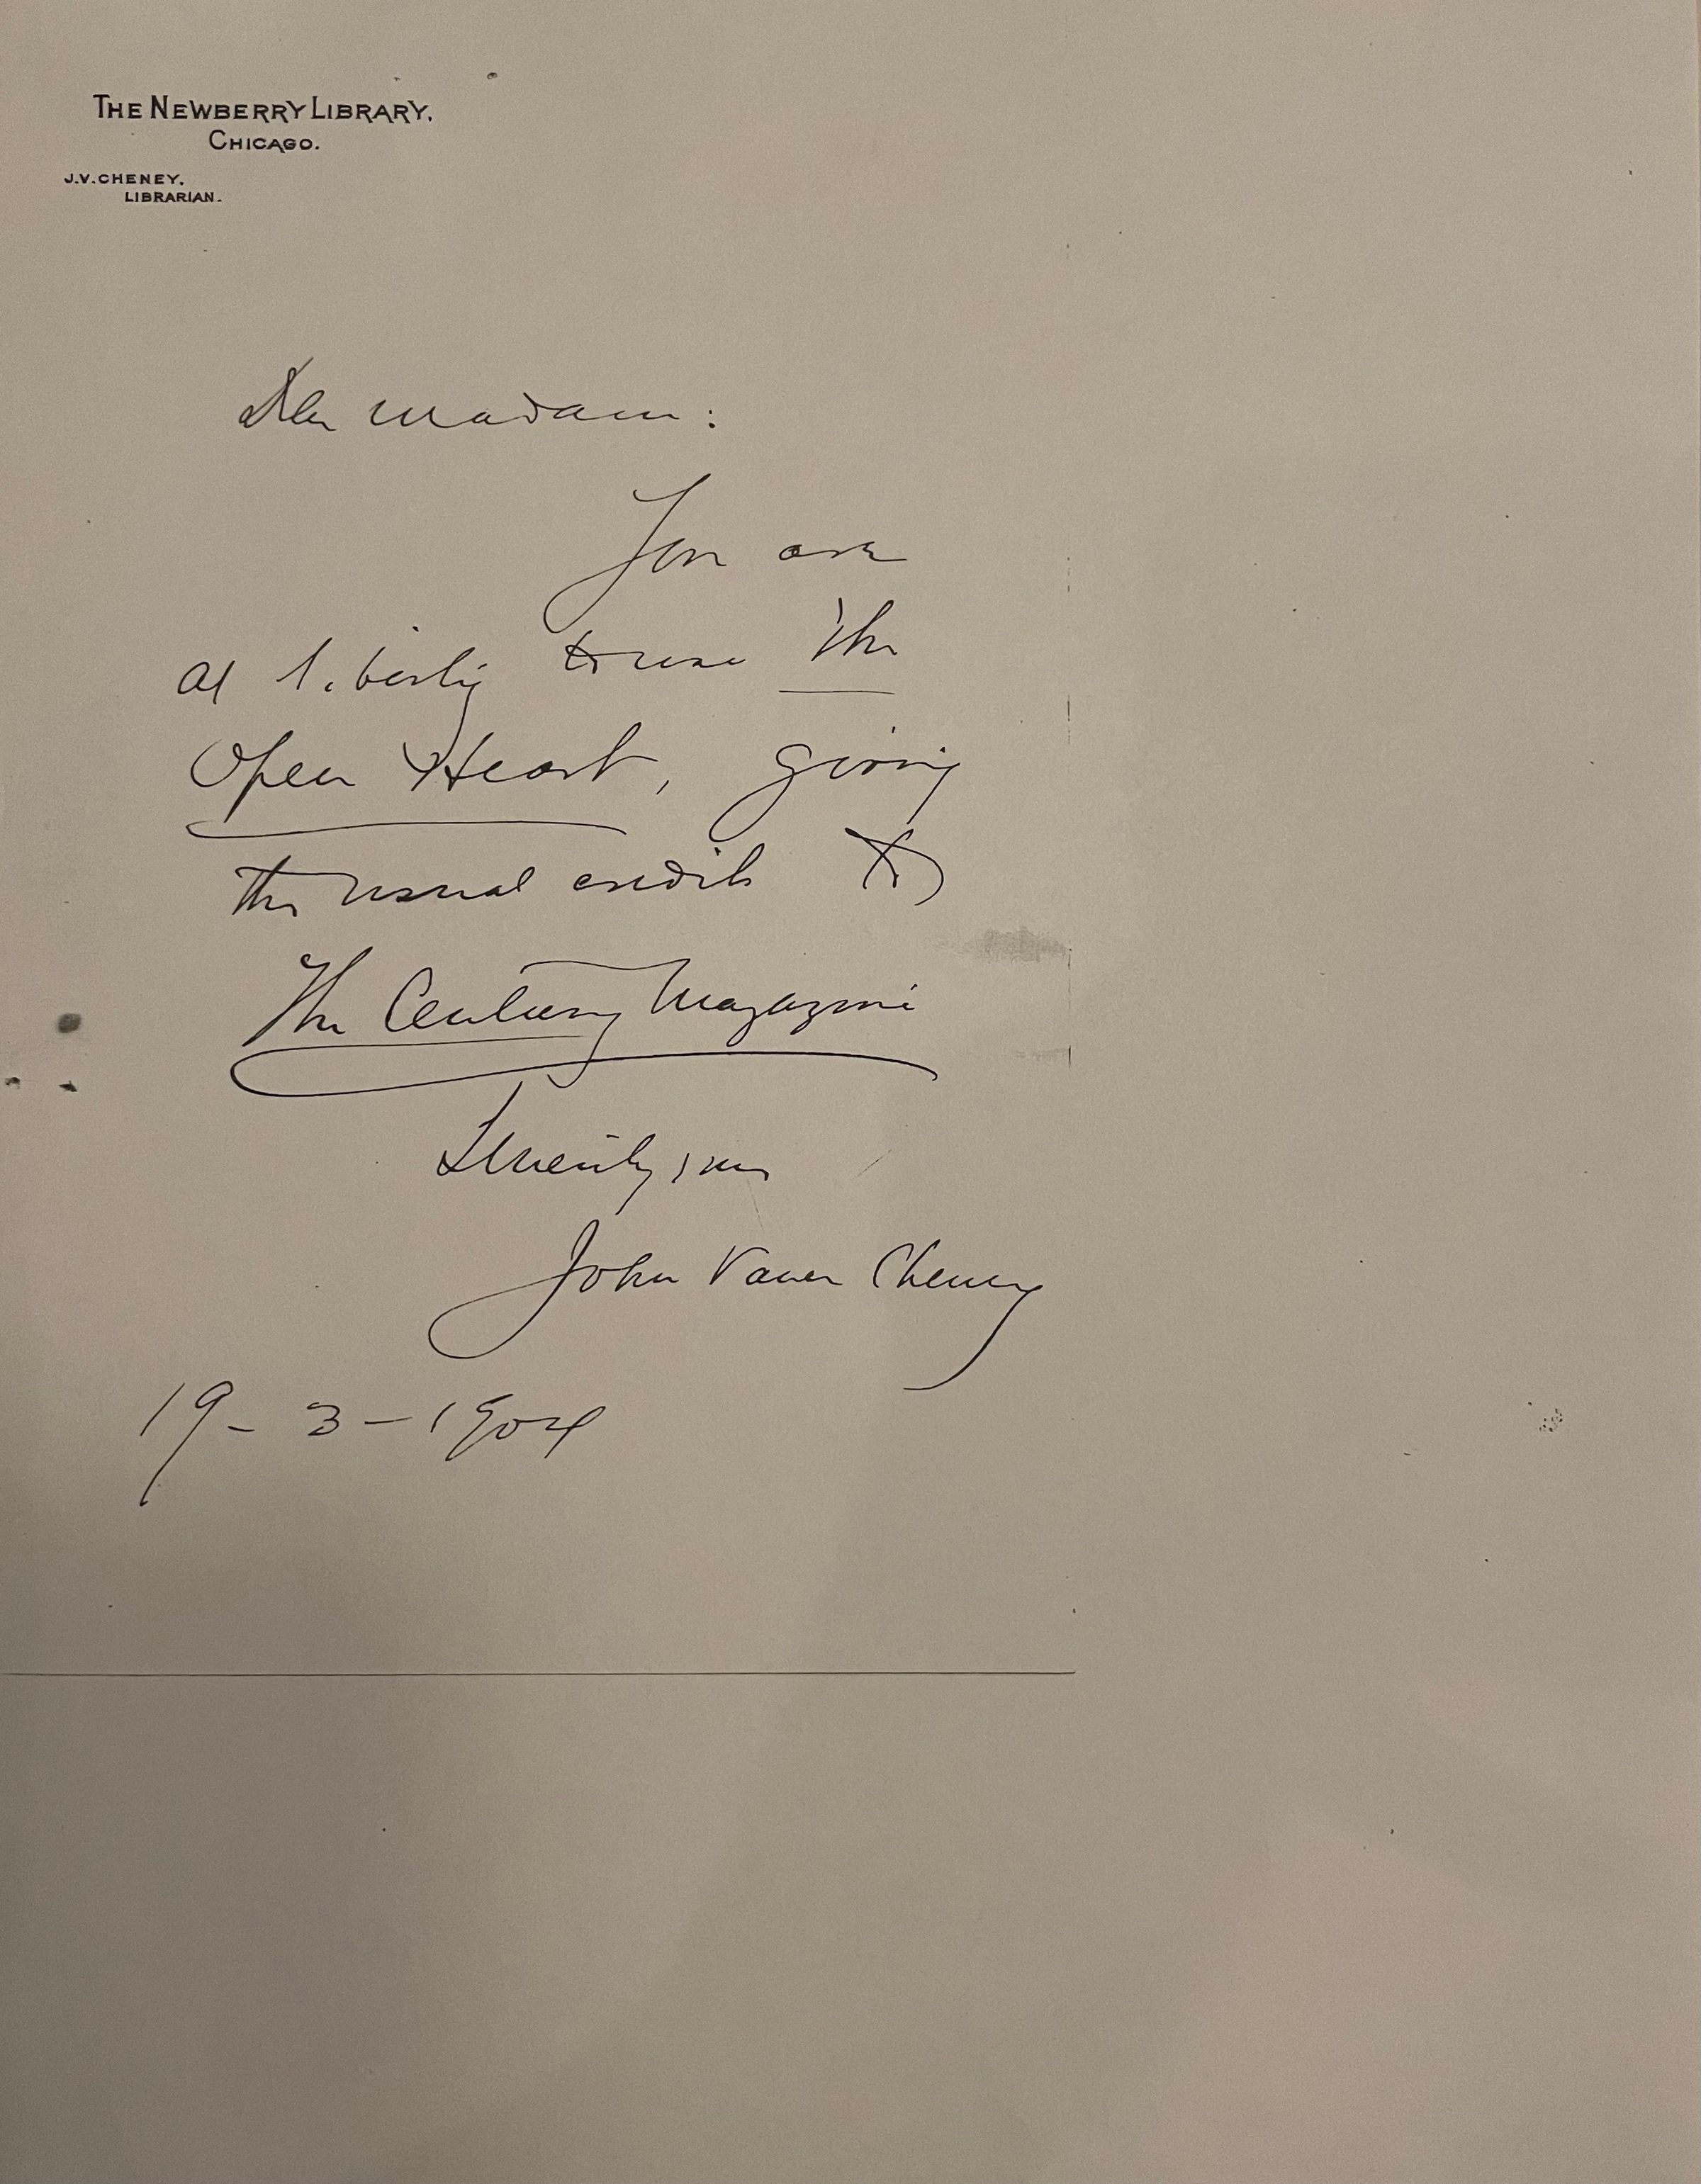 THE NEWBERRY LIBRARY,
CHICAGO.
J.V. CHENEY,
LIBRARIAN.
Dear Madam:
You are
at liberty to use The
Open Heart, giving
the usual credit to
The Century Magazine
Sincerely yours
John Vance Cheney
19-3-1904